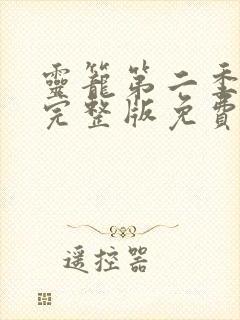 靈籠第二季
完整版免費
遥控器